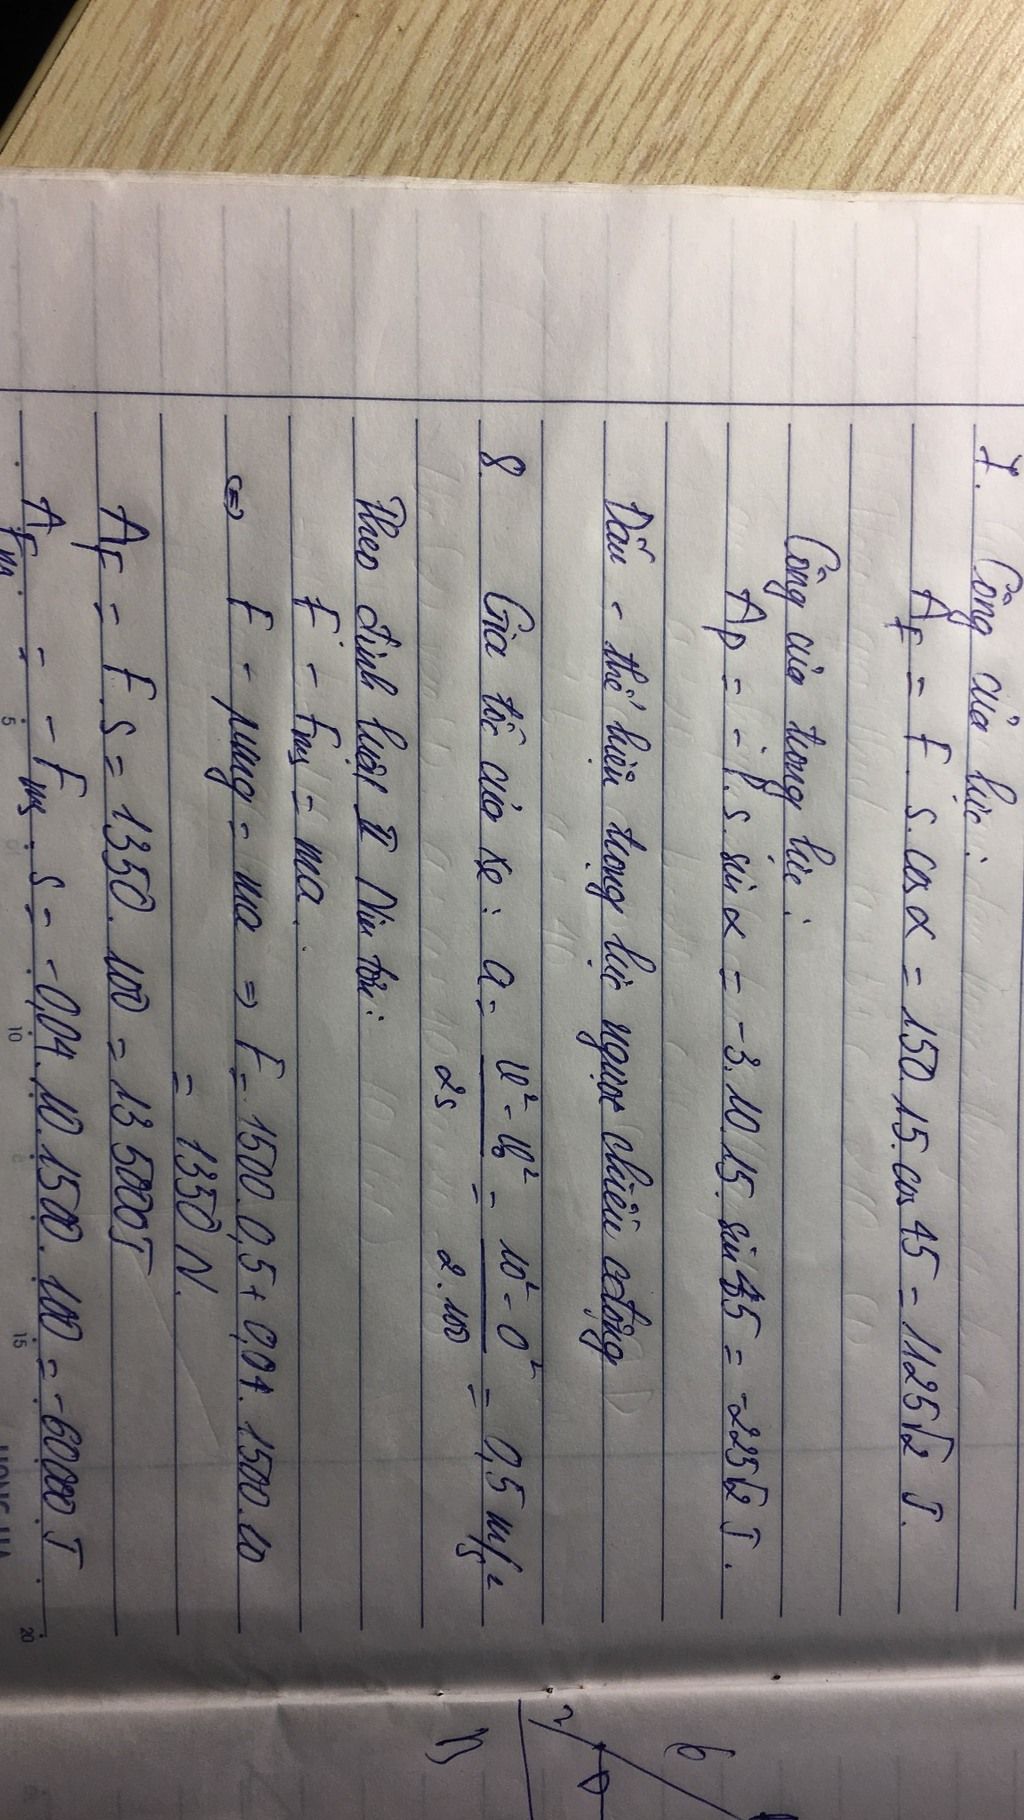 7. Công của lực:
A_F = F. s. cos α = 150. 15. cos 45 = 1125√2 J.
Công của trong lực:
A_P = - P. s. sin α = - 3. 10. 15. sin 45 = -225√2 J.
Dấu - thể hiện trọng lực ngược chiều cđộng
8. Gia tốc của xe: a = v² - v₀² / 2s = 10² - 0² / 2. 100 = 0,5 m/s²
Theo định luật II Niu tơn:
F - Fms = ma.
⇔ F - μmg = ma ⇒ F = 1500. 0,5 + 0,04. 1500. 10
= 1350 N.
A_F = F. s = 1350. 100 = 135000J
A_Fms = - Fms. s = - 0,04. 10. 1500. 100 = -60000 J
5 10 15 20
6